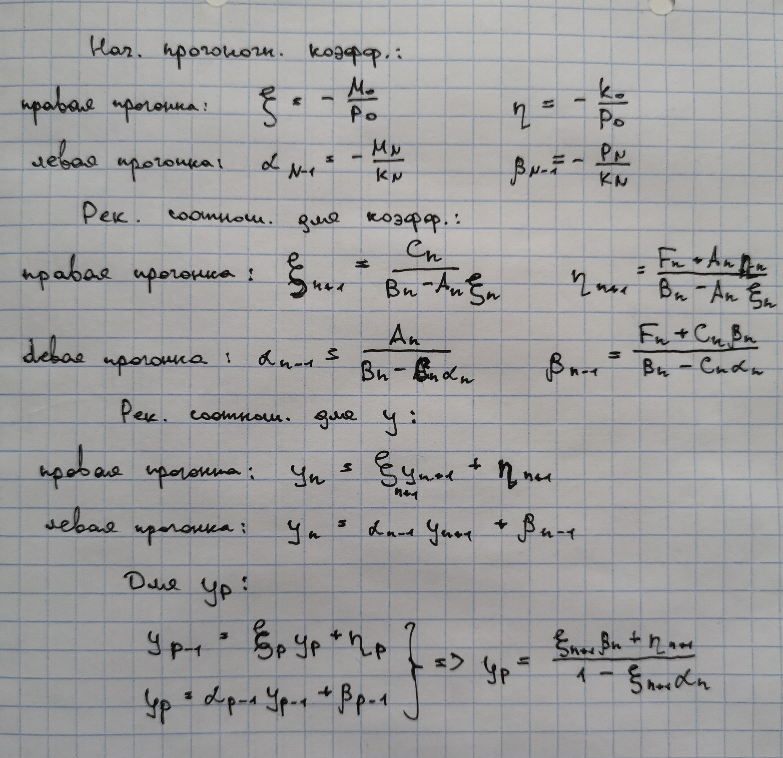 Нач. прогоночн. коэфф.:
правая прогонка: ξ = - M₀/P₀ η = - k₀/P₀
левая прогонка: α_{N-1} = - M_N/K_N β_{N-1} = - P_N/K_N
Рек. соотнош. для коэфф.:
правая прогонка: ξ_{n+1} = C_n/(B_n - A_n ξ_n) η_{n+1} = (F_n + A_n η_n)/(B_n - A_n ξ_n)
левая прогонка: α_{n-1} = A_n/(B_n - C_n α_n) β_{n-1} = (F_n + C_n β_n)/(B_n - C_n α_n)
Рек. соотнош. для y:
правая прогонка: y_n = ξ_{n+1} y_{n+1} + η_{n+1}
левая прогонка: y_n = α_{n-1} y_{n+1} + β_{n-1}
Для y_p:
y_{p-1} = ξ_p y_p + η_p
y_p = α_{p-1} y_{p-1} + β_{p-1} } => y_p = (ξ_{n+1} β_n + η_{n+1})/(1 - ξ_{n+1} α_n)